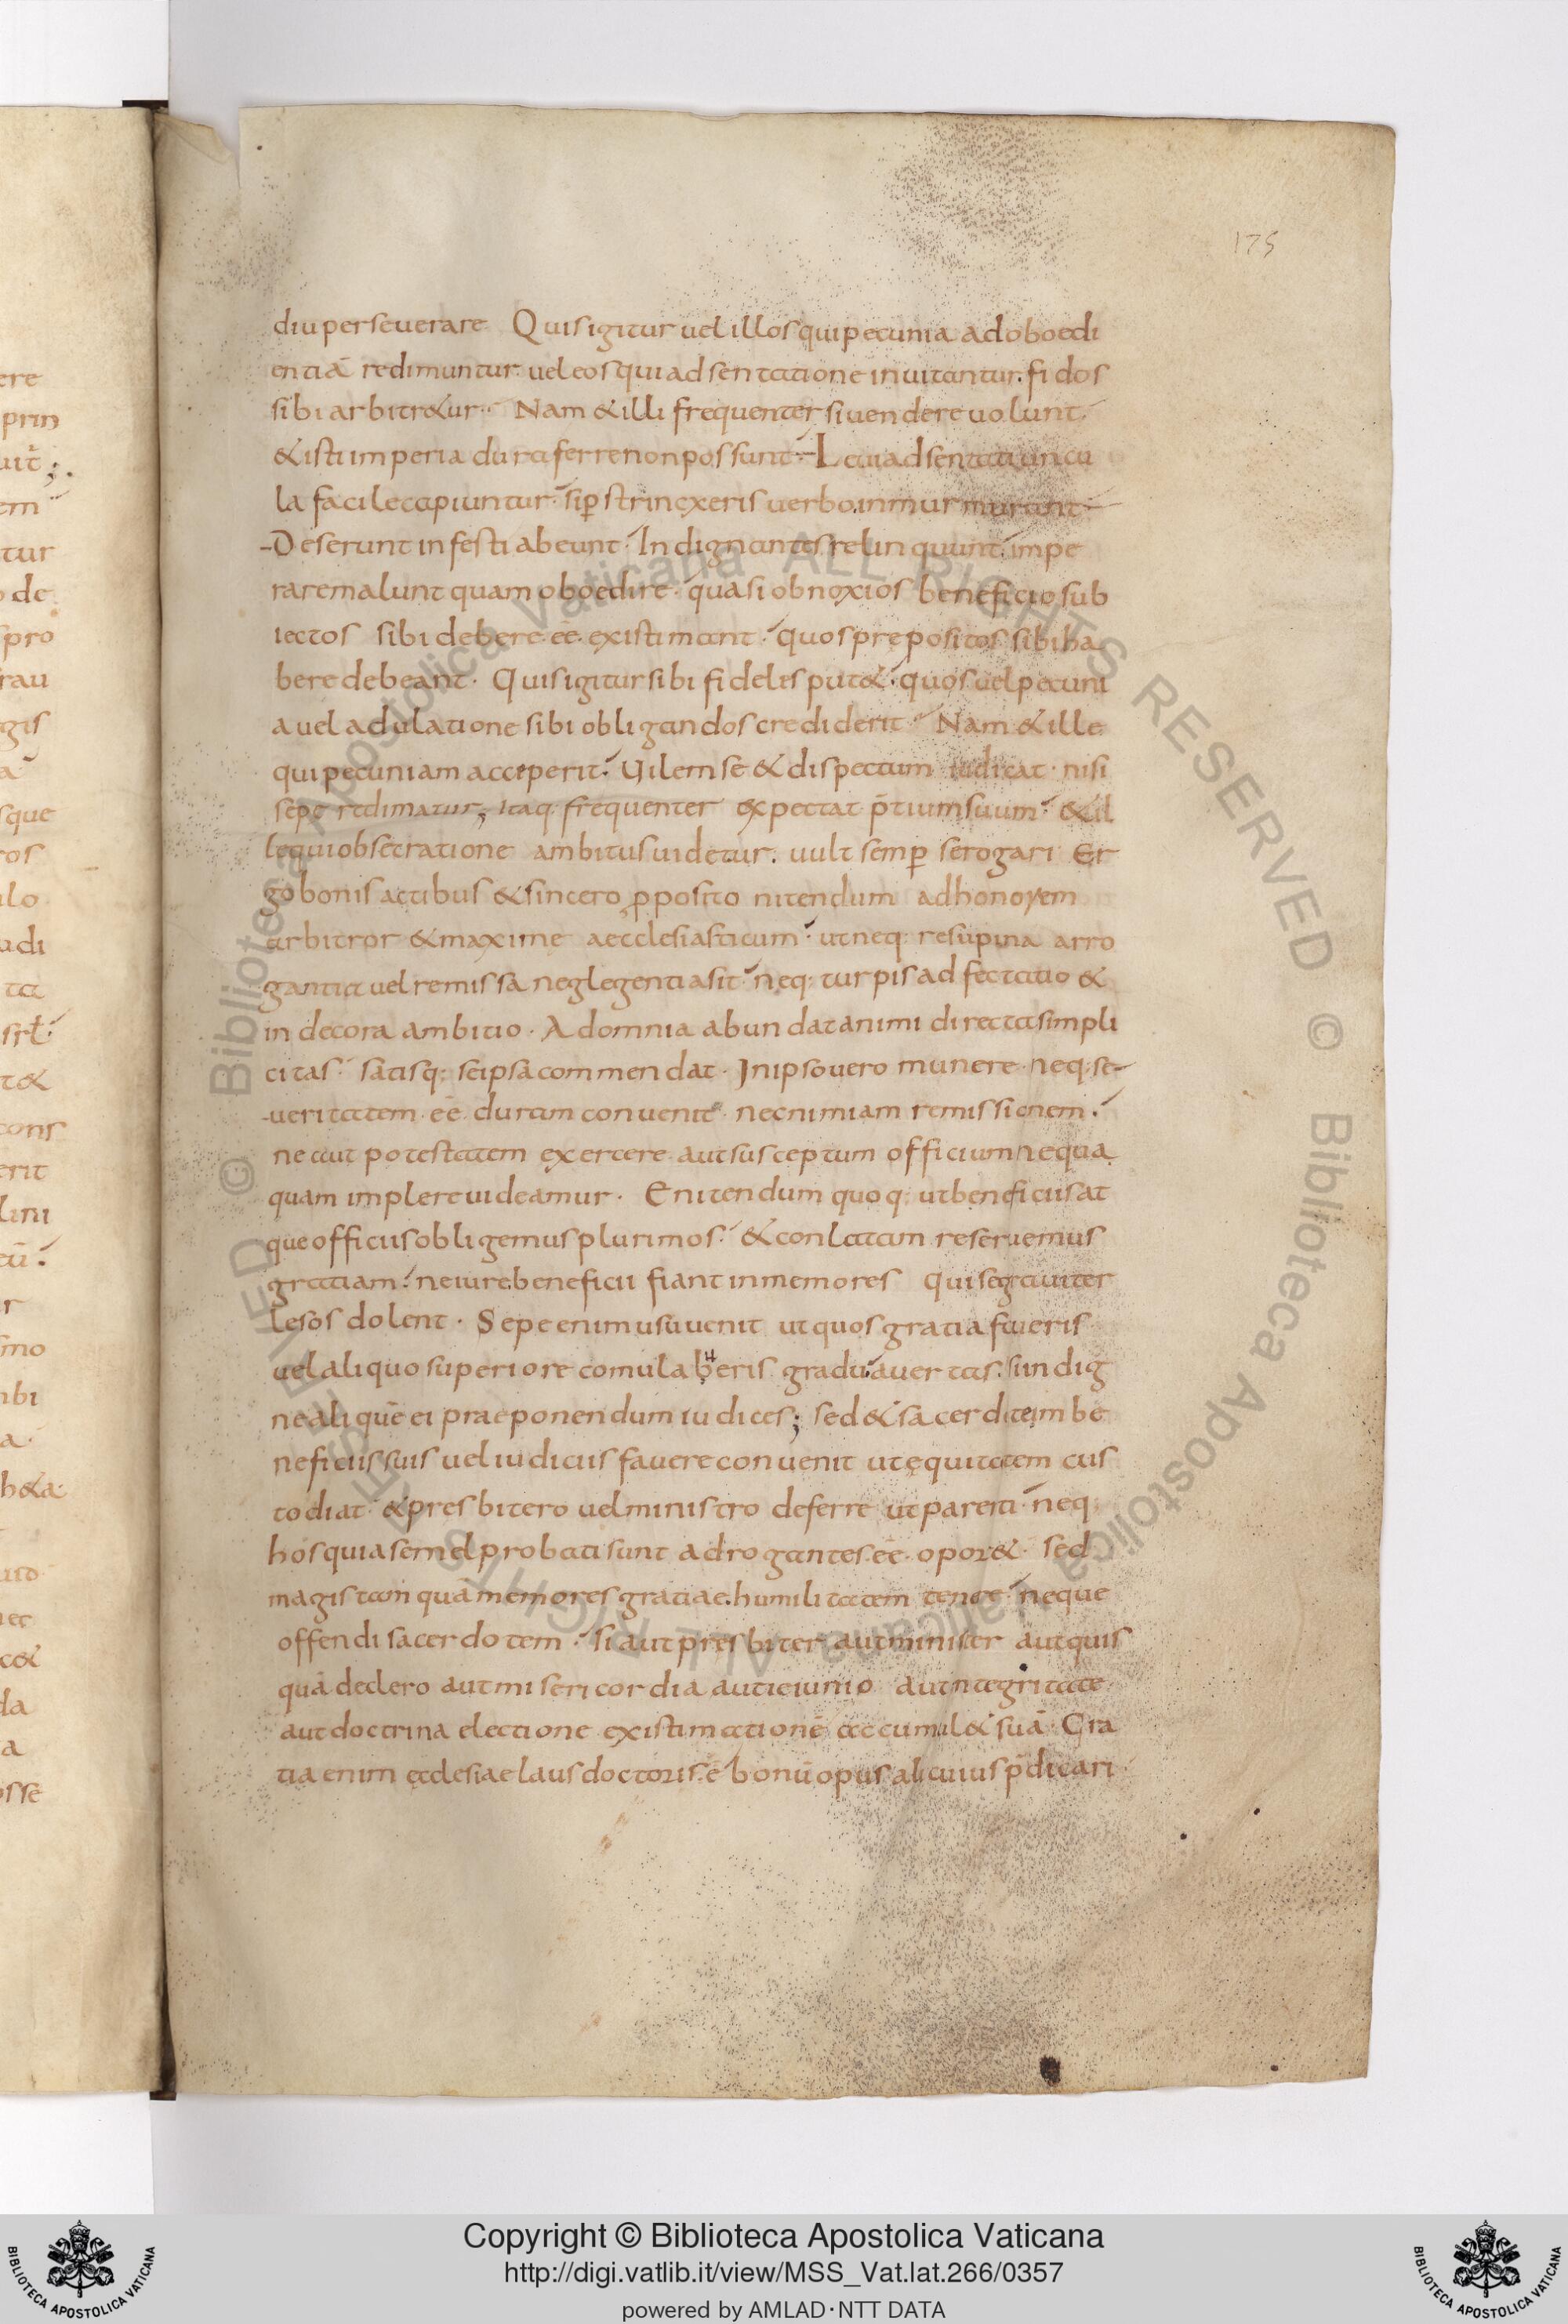 175
diu perseuerare Quis igitur uel illos qui pecunia ad oboedi
entiā redimuntur. uel eos qui adsentatione inuitantur. fidos
sibi arbitr&ur. Nam & illi frequenter si uendere uolunt.
& isti imperia dura ferre non possunt. Leui adsentatiuncu
la facile capiuntur. si p̄strinxeris uerbo. inmurmurant
Deserunt infesti abeunt. Indignantes relinquunt. impe
rare malunt quam oboedire. quasi obnoxios beneficio sub
iectos sibi debere eē existimant. quos prepositos sibi ha
bere debeant. Quis igitur sibi fideles put&. quos uel pecuni
a uel adulatione sibi obligandos crediderit. Nam & ille
qui pecuniam acceperit. Uilem se & dispectum iudicat. nisi
sepe redimatur; Itaq. frequenter expectat p̄tium suum. & il
le qui obsecratione ambitus uidetur. uult semp̄ se rogari Er
go bonis actibus & sincero p̱posito nitendum ad honorem
arbitror & maxime aecclesiasticum. ut neq; resupina arro
gantia uel remissa neglegentia sit. neq; turpis adfectatio &
indecora ambitio. Ad omnia abundat animi directa simpli
citas. satisq; se ipsa commendat. In ipso uero munere neq; se
ueritatem eē duram conuenit. nec nimiam remissionem.
ne aut potestatem exercere aut susceptum officium nequa
quam implere uideamur. Enitendum quoq; ut beneficiis at
que officiis obligemus plurimos. & conlatam reseruemus
gratiam. ne iure beneficii fiant inmemores qui se grauiter
lesos dolent. Sepe enim usu uenit ut quos gratia foueris
uel aliquo superiore comulaberis gradu. auertas. si indig
ne aliquē ei praeponendum iudices; sed & sacerdotem be
neficiis suis uel iudiciis fauere conuenit ut ęquitatem cus
todiat. & presbitero uel ministro deferre ut parenti. neq;
hos quia semel probati sunt adrogantes eē. opor&. sed
magis tamquam emores gratiae. humilitatem tenere. neque
offendi sacerdotem. si aut presbiter aut minister aut quis
quā declero aut misericordia aut ieiunio aut ntegritate
aut doctrina electione existimationē accumul& suā. Gra
tia enim ęcclesiae laus doctoris. ē bonū opus alicuius p̄dicari
ere
prin
uit̄;.
em
tur
o de
pro
rau
gis
a
sque
ros
ilo
udi
ta
srt.
t&
cons
erit
lini
cū.
r
mo
nbi
a.
b&a
uid
nec
c&
da
a
osse
© Biblioteca Apostolica Vaticana ALL RIGHTS RESERVED © Biblioteca Apostolica Vaticana ALL RIGHTS RESERVED
BIBLIOTECA APOSTOLICA VATICANA
Copyright © Biblioteca Apostolica Vaticana
http://digi.vatlib.it/view/MSS_Vat.lat.266/0357
powered by AMLAD·NTT DATA
BIBLIOTECA APOSTOLICA VATICANA